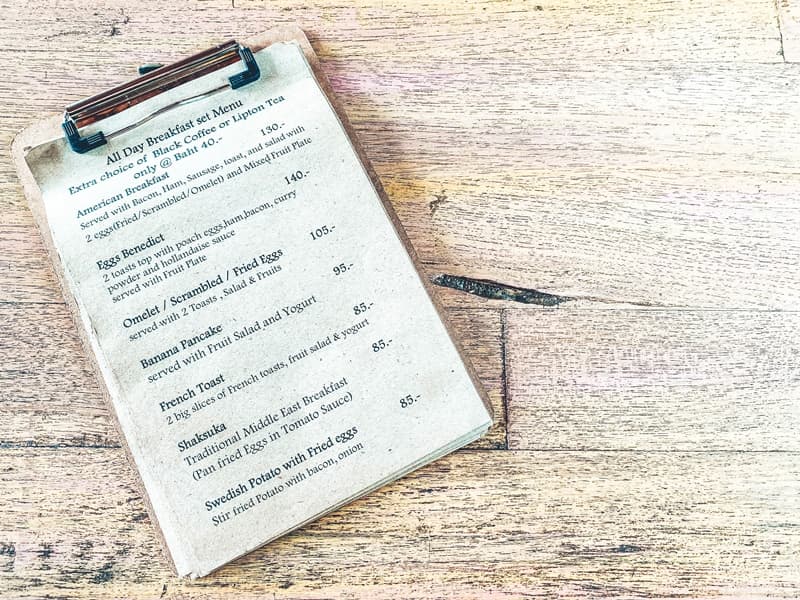 All Day Breakfast set Menu
Extra choice of Black Coffee or Lipton Tea
only @ Baht 40.-
American Breakfast 130.-
Served with Bacon, Ham, Sausage, toast, and salad with
2 eggs(Fried/Scrambled/Omelet) and Mixed Fruit Plate
Eggs Benedict 140.-
2 toasts top with poach eggs,ham,bacon, curry
powder and hollandaise sauce
served with Fruit Plate
Omelet / Scrambled / Fried Eggs 105.-
served with 2 Toasts , Salad & Fruits
Banana Pancake 95.-
served with Fruit Salad and Yogurt
French Toast 85.-
2 big slices of French toasts, fruit salad & yogurt
Shaksuka 85.-
Traditional Middle East Breakfast
(Pan fried Eggs in Tomato Sauce)
Swedish Potato with Fried eggs 85.-
Stir fried Potato with bacon, onion